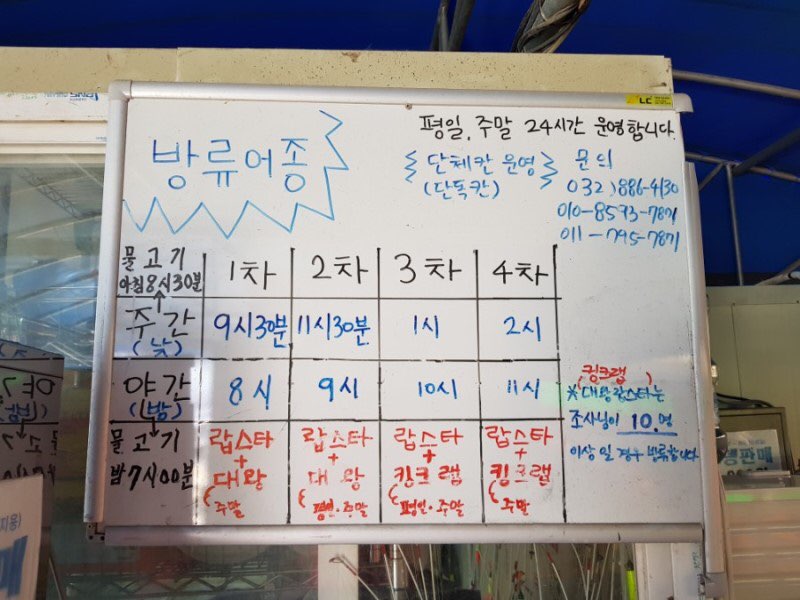 평일, 주말 24시간 운영합니다.
방류어종
단체칸 운영
(단독칸)
문의
032)886-4130
010-8593-7871
011-795-7871
물고기
아침8시30분
1차 2차 3차 4차
주간
(낮)
9시30분 11시30분 1시 2시
야간
(밤)
8시 9시 10시 11시
물고기
밤7시00분
랍스타 랍스타 랍스타 랍스타
+ + + +
대왕 대왕 킹크랩 킹크랩
주말 평일·주말 평일·주말 주말
(킹크랩)
※대왕랍스타는
조사님이 10.명
이상 일 경우 방류합니다
판매